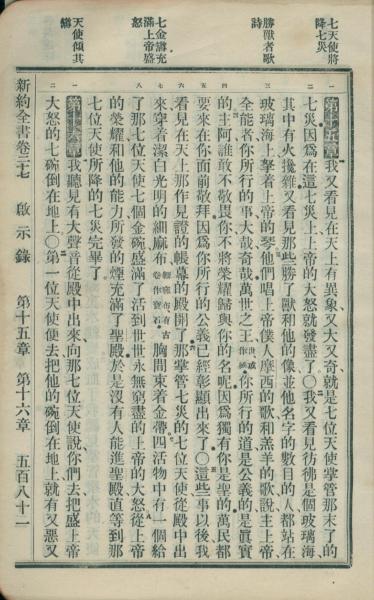 七天使將
降七災
勝獸者歌
詩
七金𥂐充
滿上帝盛
怒
天使傾其
第十五章 我又看見在天上有異象又大又奇就是七位天使掌管那末了的
七災因爲在這七災上上帝的大怒就發盡了〇我又看見彷彿是個玻璃海
其中有火攙雜又看見那些勝了獸和他的像並他名字的數目的人都站在
玻璃海上拏着上帝的琴他們唱上帝僕人摩西的歌和羔羊的歌說主上帝
全能者你所行的事大哉奇哉萬世之王你所行的道是公義的是眞實
的主阿誰敢不敬畏你不將榮耀歸與你的名呢因爲獨有你是聖的萬民都
要來在你面前敬拜因爲你所行的公義已經彰顯出來了〇這些事以後我
看見在天上那作見證的帳幕的殿開了那掌管七災的七位天使從殿中出
來穿着潔白光明的細麻布 胸間束着金帶四活物中有一個給
了那七位天使七個金碗盛滿了活到世世永無窮盡的上帝的大怒從上帝
的榮耀和他的能力所發的煙充滿了聖殿於是沒有人能進聖殿直等到那
七位天使所降的七災完畢了
第十六章 我聽見有大聲音從殿中出來向那七位天使說你們去把盛上帝
大怒的七碗倒在地上〇第一位天使便去把他的碗倒在地上就有又惡又
新約全書卷二十七 啟示錄 第十五章 第十六章 五百八十一